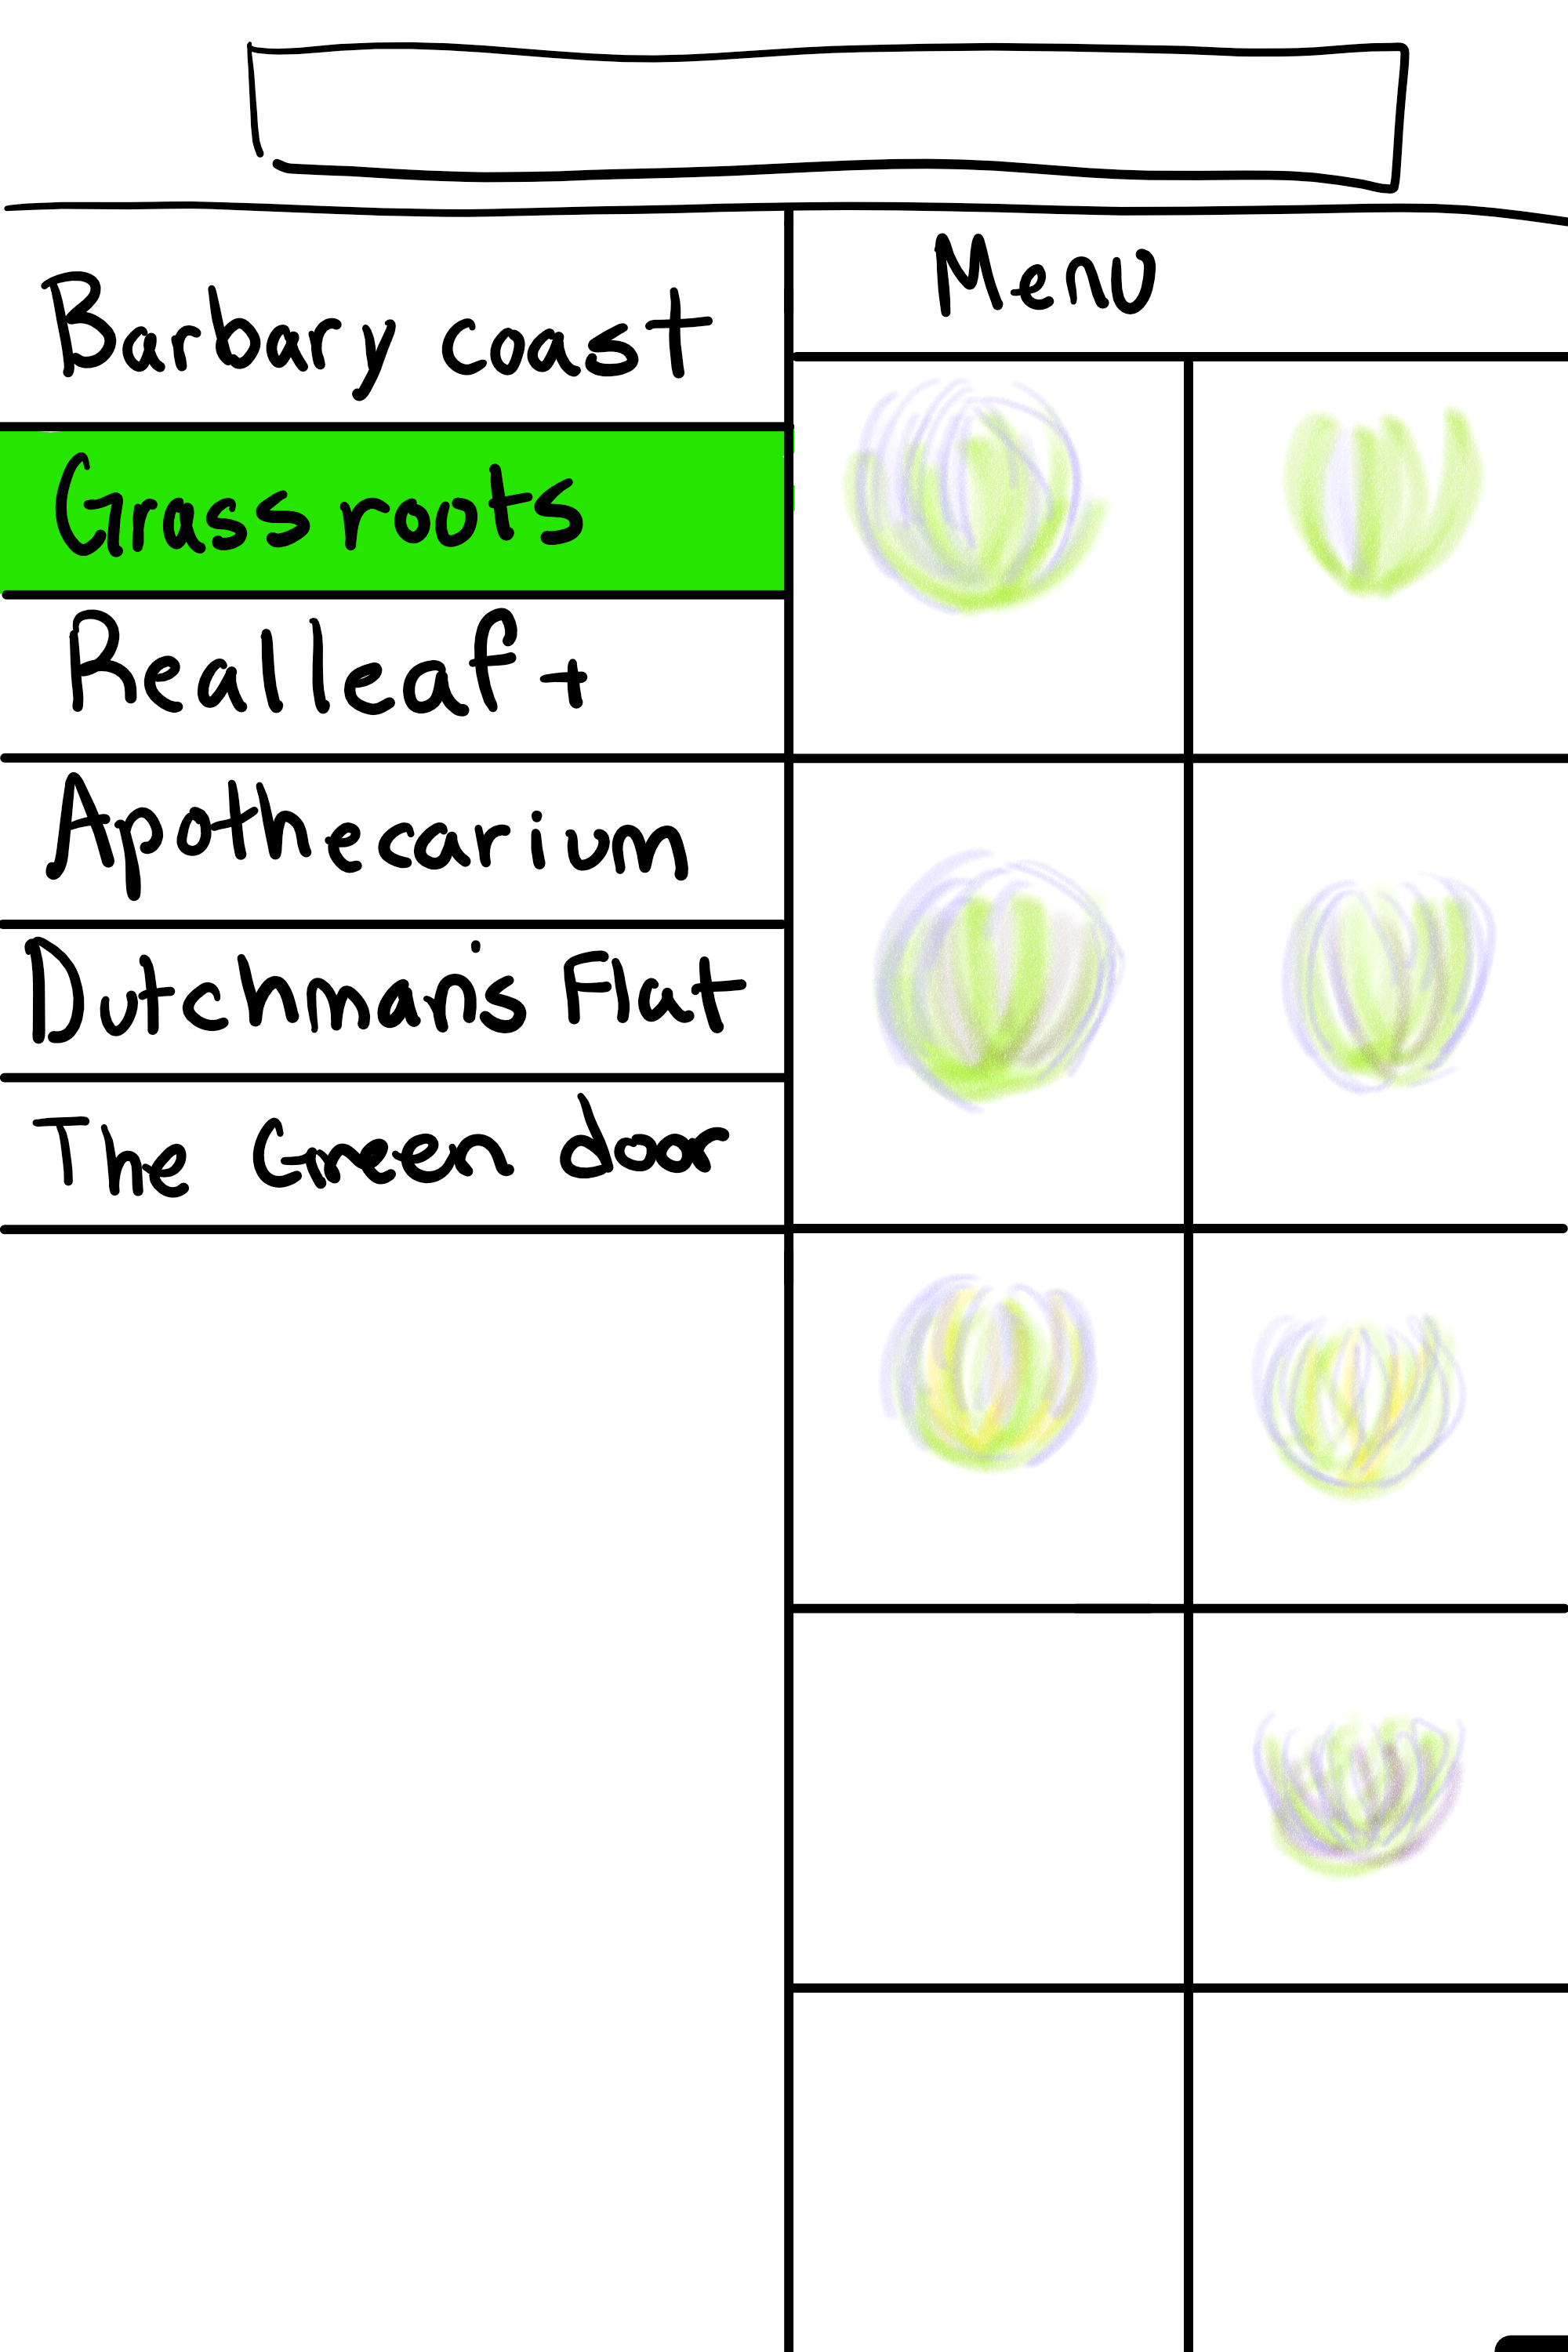 Barbary coast
Grass roots
Real leaf +
Apothecarium
Dutchman's Flat
The Green door
Menu